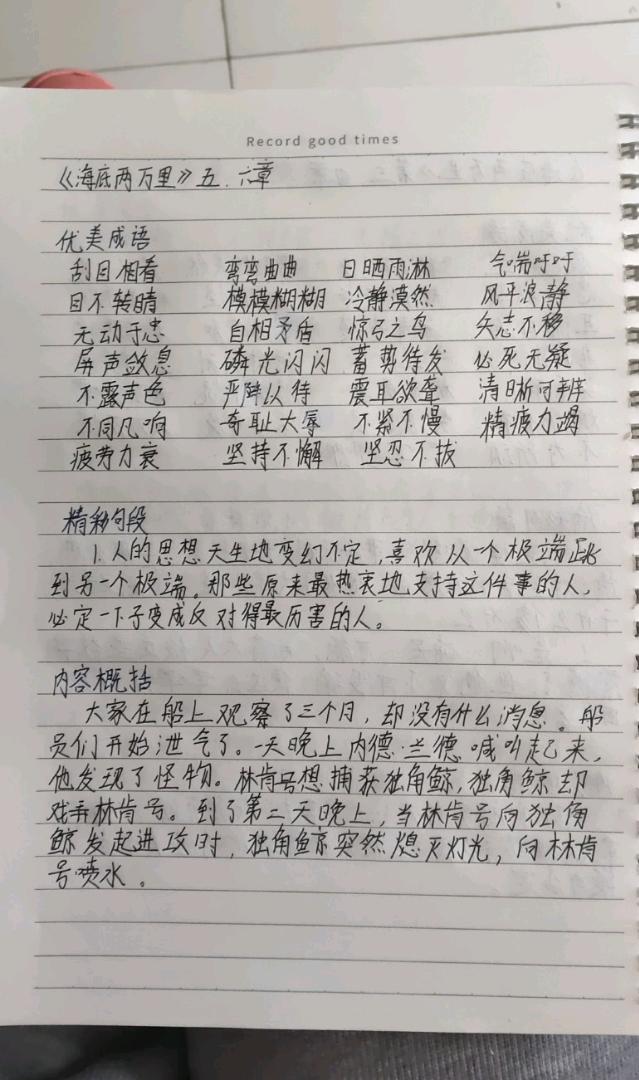 Record good times
《海底两万里》五.六章
优美成语
刮目相看 弯弯曲曲 日晒雨淋 气喘吁吁
目不转睛 模模糊糊 冷静漠然 风平浪静
无动于忠 自相矛盾 惊弓之鸟 矢志不移
屏声敛息 磷光闪闪 蓄势待发 必死无疑
不露声色 严阵以待 震耳欲聋 清晰可辨
不同凡响 奇耻大辱 不紧不慢 精疲力竭
疲劳力衰 坚持不懈 坚忍不拔
精彩句段
1.人的思想天生地变幻不定,喜欢从一个极端跳
到另一个极端。那些原来最热衷地支持这件事的人,
必定一下子变成反对得最厉害的人。
内容概括
大家在船上观察了三个月,却没有什么消息。船
员们开始泄气了。一天晚上内德·兰德喊叫起来,
他发现了怪物。林肯号想捕获独角鲸,独角鲸却
戏弄林肯号。到了第二天晚上,当林肯号向独角
鲸发起进攻时,独角鲸突然熄灭灯光,向林肯
号喷水。